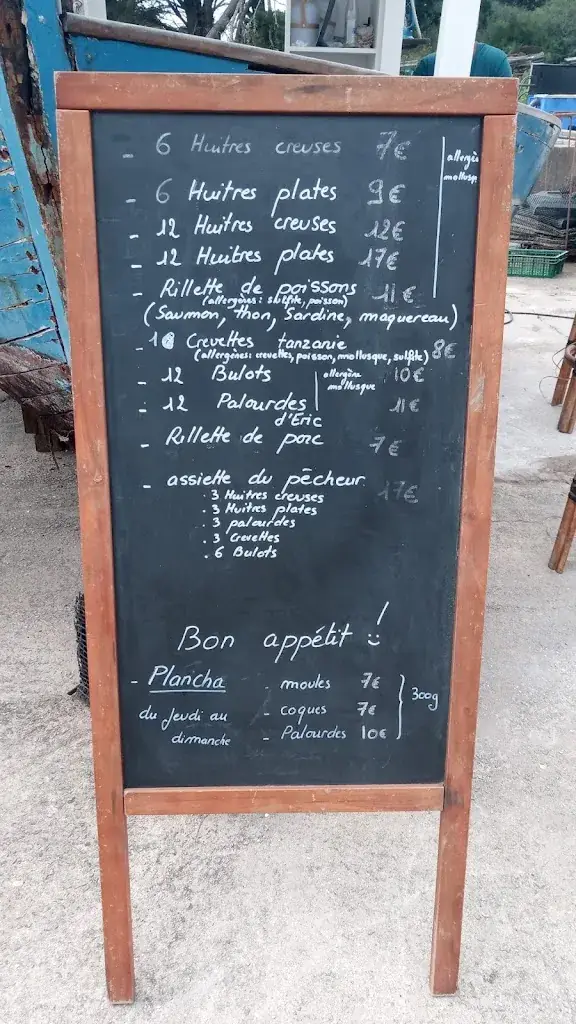 - 6 Huitres creuses 7€
- 6 Huitres plates 9€
- 12 Huitres creuses 12€
- 12 Huitres plates 17€
allergèn
mollusq
- Rillette de poissons 11€
(allergènes: sulfite, poisson)
(Saumon, thon, Sardine, maquereau)
- Crevettes tanzanie 8€
(allergènes: crevettes, poisson, mollusque, sulfite)
- 12 Bulots 10€
- 12 Palourdes 11€
d'Eric
allergène
mollusque
- Rillette de porc 7€
- assiette du pêcheur 17€
. 3 Huitres creuses
. 3 Huitres plates
. 3 palourdes
. 3 Crevettes
. 6 Bulots
Bon appétit !
- Plancha - moules 7€
du Jeudi au - coques 7€
dimanche - Palourdes 10€
300g